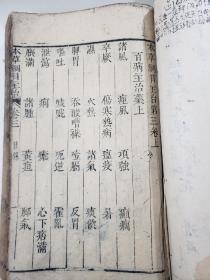 本草綱目主治第三卷上
百病主治藥上
諸風 痙風 項強 癲癇
卒厥 傷寒熱病 瘟疫 暑
濕 火熱 諸氣 痰飲
脾胃 吞酸嘈雜 噎膈 反胃
嘔吐 噦啘 呃逆 霍亂
泄瀉 痢 瘧 心下痞滿
脹滿 諸腫 黃疸 腳氣
本草綱目主治 卷三